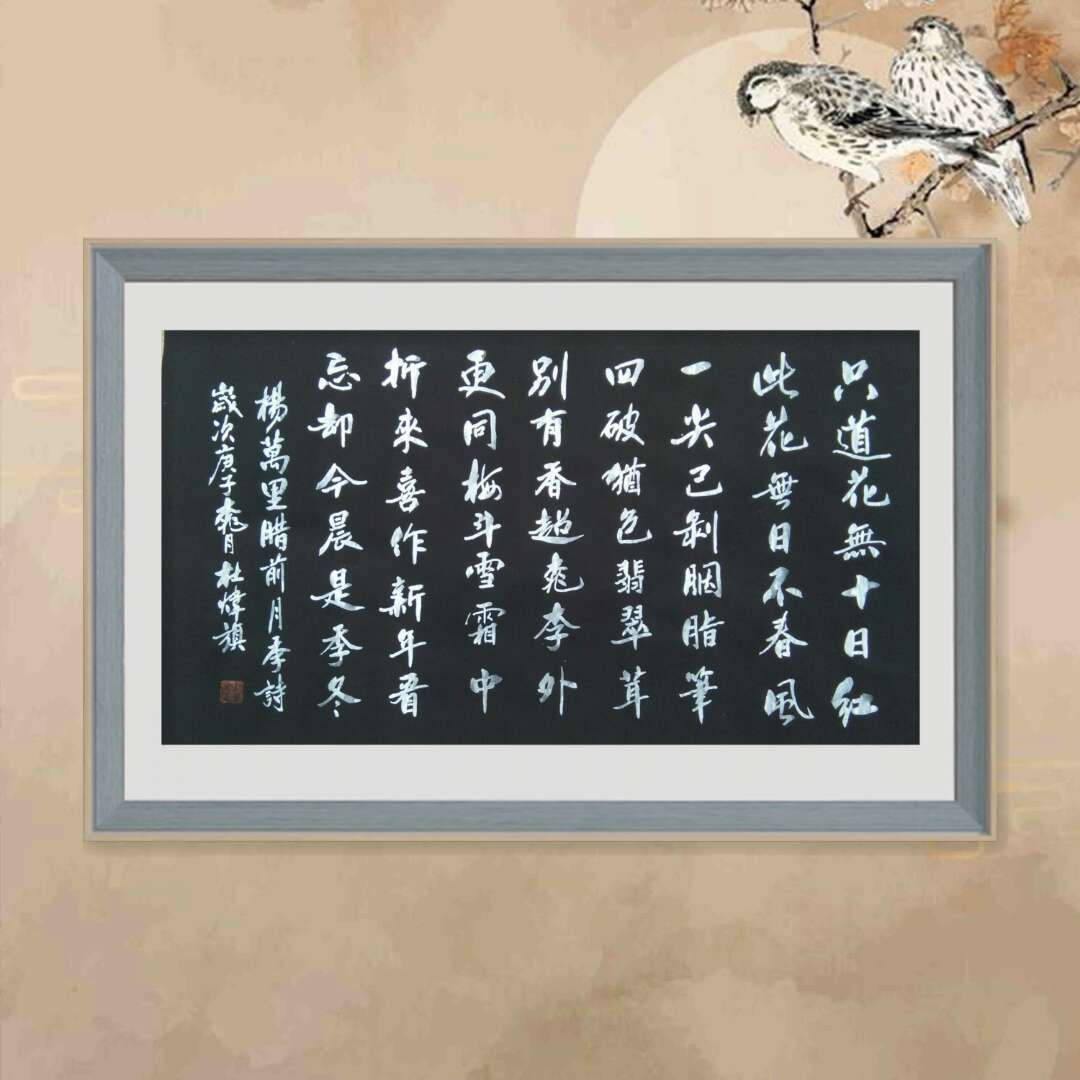 只道花無十日紅
此花無日不春風
一尖已剝胭脂筆
四破猶包翡翠茸
別有香超桃李外
更同梅斗雪霜中
折來喜作新年看
忘却今晨是季冬
楊萬里腊前月季詩
歲次庚子桃月杜煒旗